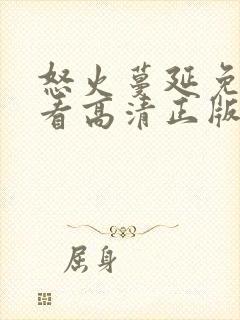 怒火蔓延免
看高清正版
屈身